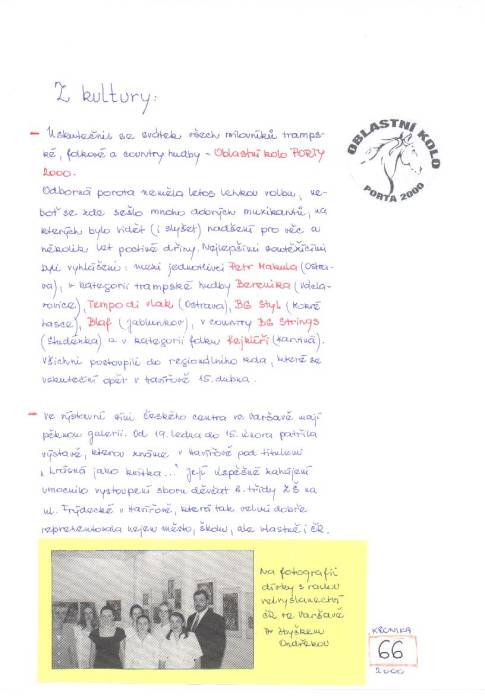 Z kultury:
OBLASTNÍ KOLO
PORTA 2000
– Uskutečnil se svátek všech milovníků tramps-
ké, folkové a country hudby – Oblastní kolo PORTY
2000.
Odborná porota neměla letos lehkou volbu, ne-
boť se zde sešlo mnoho dobrých muzikantů, na
kterých bylo vidět (i slyšet) nadšení pro věc a
několik let poctivé dřiny. Nejlepšími soutěžícími
byli vyhlášeni: mezi jednotlivci Petr Makula (Ostra-
va), v kategorii trampské hudby Berenika (Vála-
rovice), Tempo di vlak (Ostrava), BG Styl (Horní
), Blaf (Jablunkov), v country BG Strings
(Studénka) a v kategorii folku Kejkúři (Karviná).
Všichni postoupili do regionálního kola, které se
uskuteční opět v Havířově 15. dubna.
– Ve výstavní síni Českého centra ve Varšavě mají
pěknou galerii. Od 19. ledna do 15. února patřila
výstavě, kterou známe v Havířově pod titulem
„Krásná jako kytka..." její úspěšné zahájení
umocnilo vystoupení sboru děvčat 6. třídy ZŠ na
ul. Frýdecké v Havířově, která tak velmi dobře
reprezentovala nejen město, školu, ale vlastně i ČR.
Na fotografii
dívky s radou
velvyslanectví
ČR ve Varšavě
Dr Zbyškem
Ondřekou
KRONIKA
66
2000